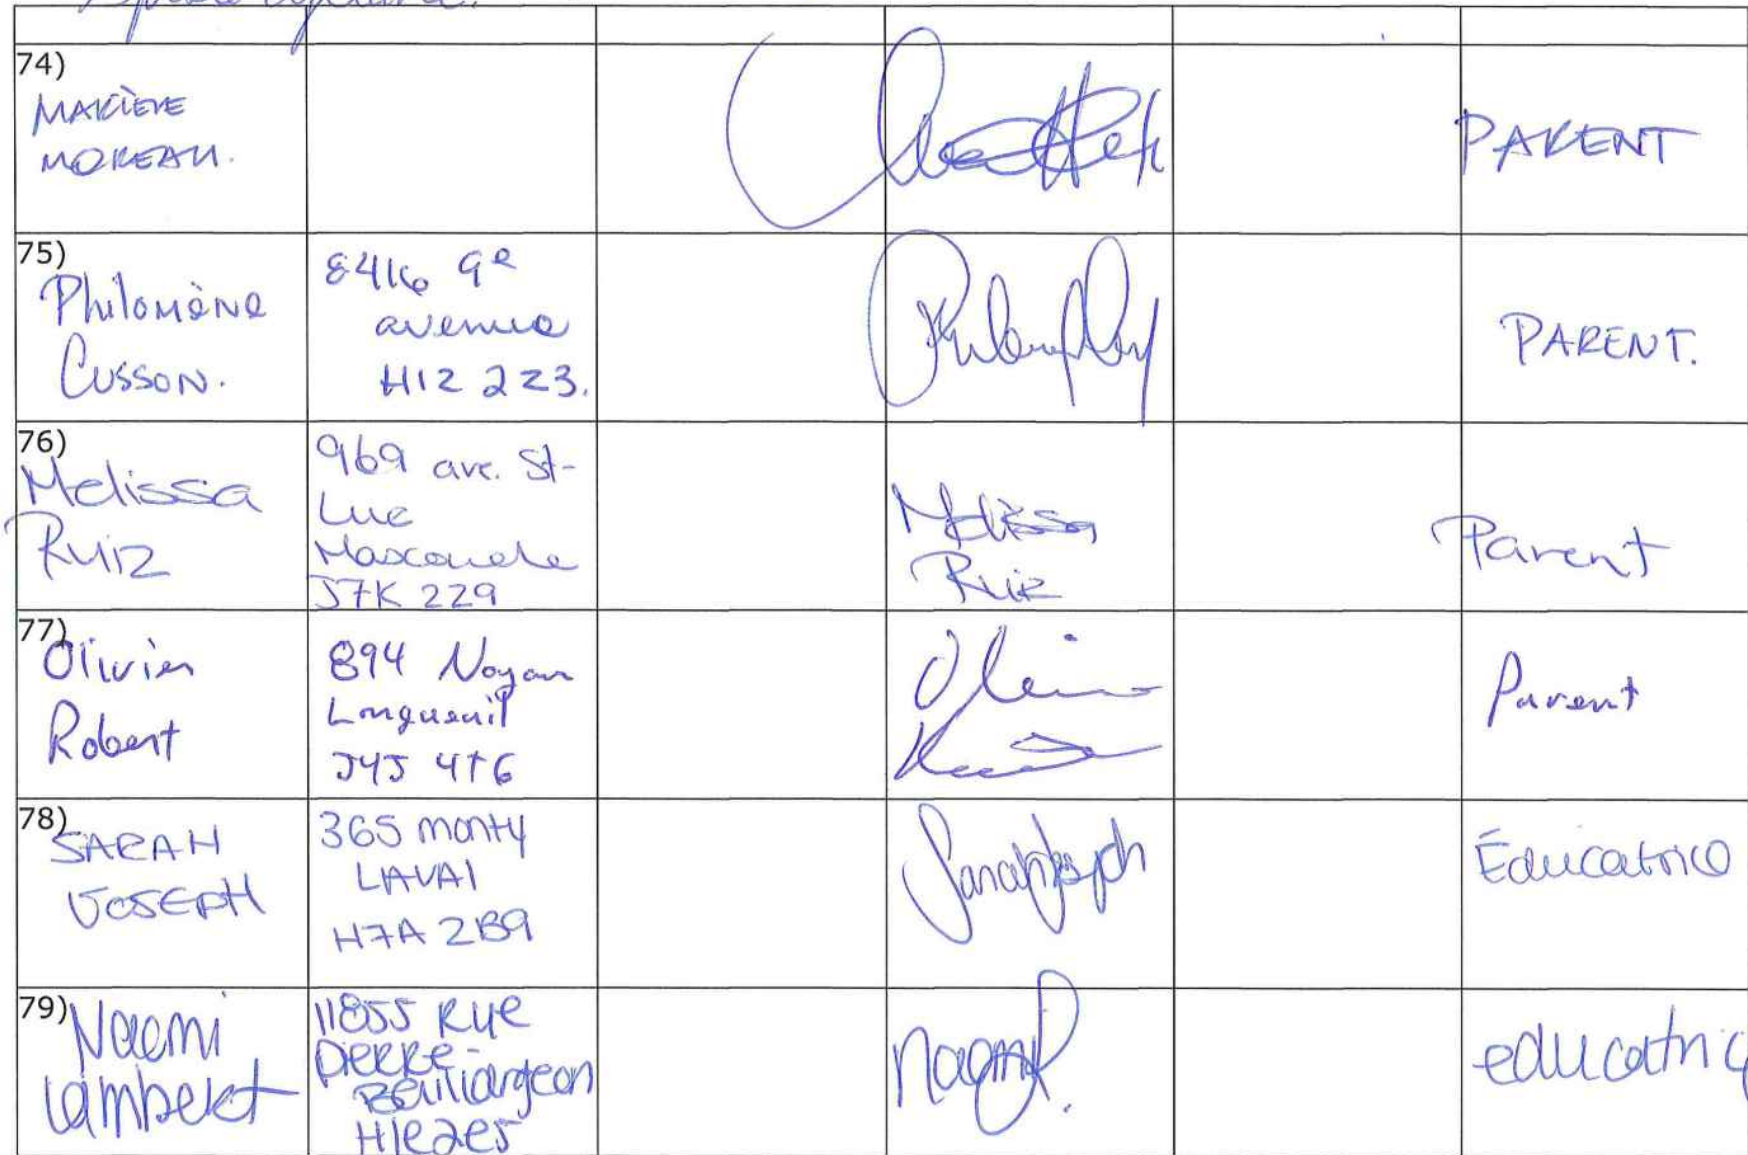 74)
MARIÈVE
MOREAU.
PARENT
75)
Philomène
Cusson.
8416 9e
avenue
H1Z 2Z3.
PARENT.
76)
Melissa
Ruiz
969 ave. St-
Luc
Mascouche
J7K 2Z9
Melissa
Ruiz
Parent
77)
Olivier
Robert
894 Noyan
Longueuil
J4J 4T6
Parent
78)
SARAH
JOSEPH
365 monty
LAVAl
H7A 2B9
Sarah Joseph
Éducatrice
79)
Naemi
Lambert
11855 Rue
Pierre-
Baillargeon
H1E2E5
educatric